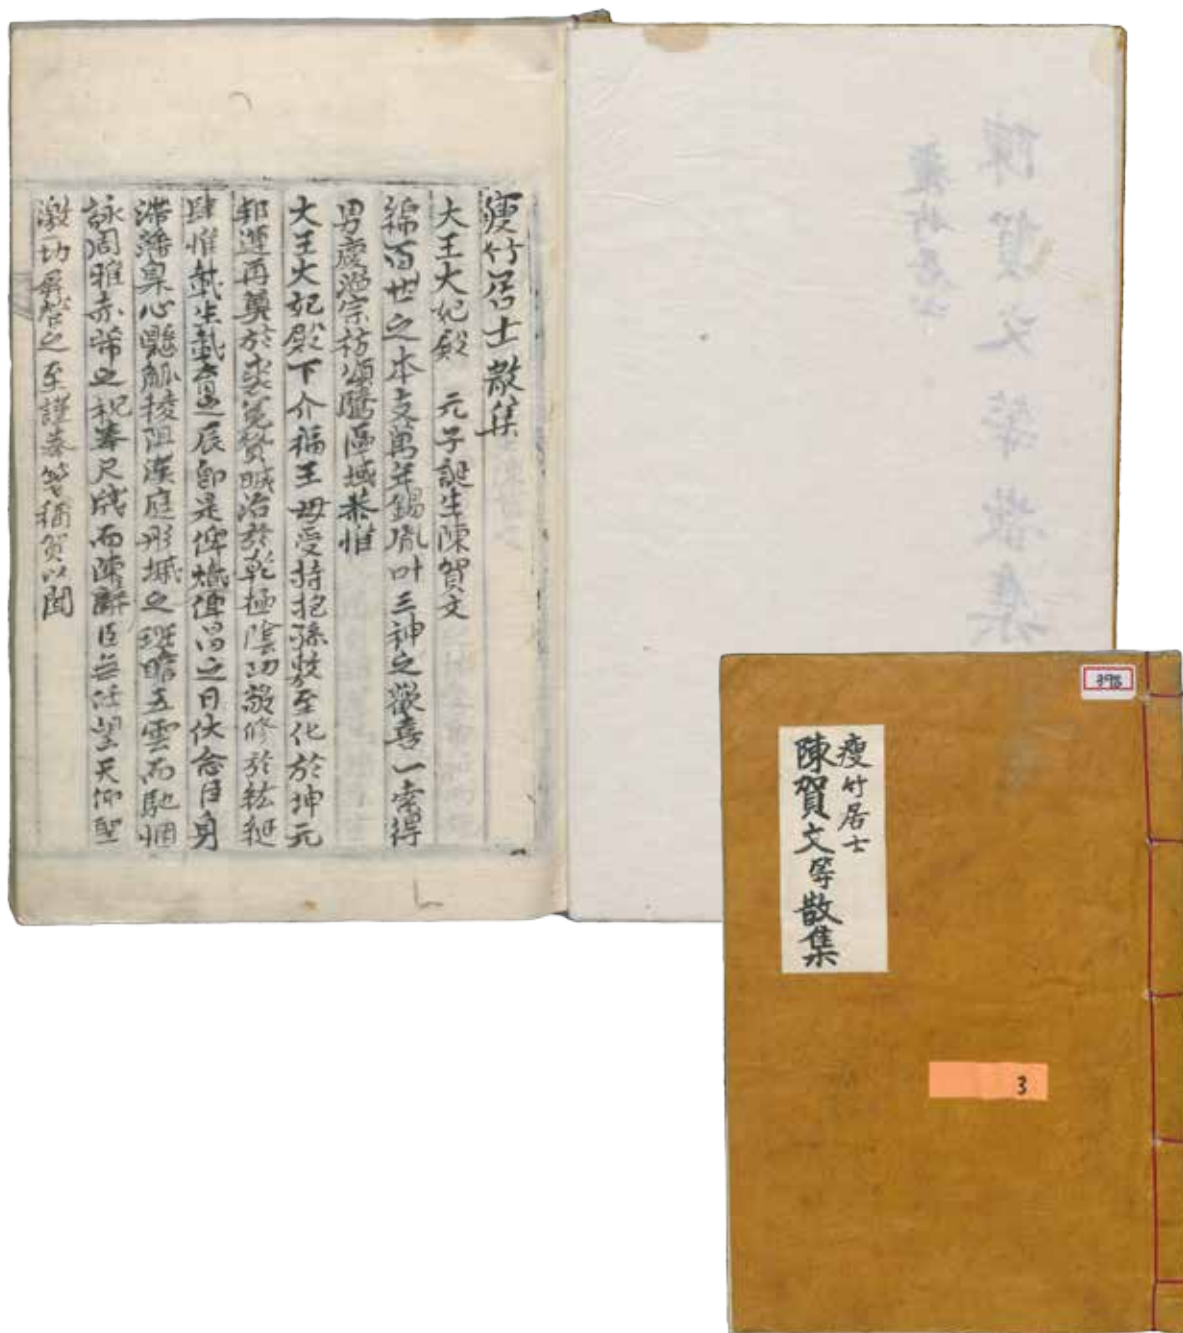 瘦竹居士散集
大王大妃殿 元子誕生陳賀文
綿百世之本支萬年錫胤叶三神之歡喜一索得
男慶溢宗祊頌騰區域恭惟
大王大妃殿下介福王母受持抱孫敷至化於坤元
邦運再奠於求寃賛 治於乾極陰功敬修於紘綖
肆惟載生載育之辰卽是俾熾俾昌之日伏念臣身
滯藩臬心懸觚稜阻漢庭彤墀之班瞻五雲而馳悃
詠周雅赤芾之祝奉尺牋而陳辭臣無任望天仰聖
激切屛營之至謹奉箋稱賀以聞
陳賀文等散集
瘦竹居士
398
瘦竹居士
陳賀文等散集
3